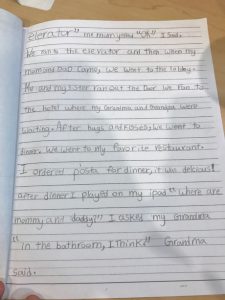 elerator" me mom yelled "OK" I said.
We ran to the elerator and then when my
mom and Dad came, we went to the lobby.
Me and my sister ran out the Door we ran to
the hotel where my Grandma and Grandpa were
waiting. After hugs and kisses, we went to
dinner. We went to my favorite restaurant.
I ordered pasta for dinner, it was delicious!
after dinner I played on my ipad "where are
mommy and daddy?" I asked my Grandma
"in the bathroom, I think!" Grandma
said.